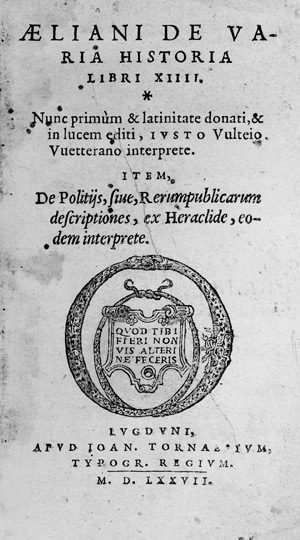 ÆLIANI DE VA-
RIA HISTORIA
LIBRI XIIII.
*
Nunc primùm & latinitate donati, &
in lucem editi, IVSTO Vulteio
Vuetterano interprete.
ITEM,
De Politijs, siue, Rerumpublicarum
descriptiones, ex Heraclide, eo-
dem interprete.
QVOD TIBI
FIERI NON
VIS ALTERI
NE FECERIS
LVGDVNI,
APVD IOAN. TORNAESIVM,
TYPOGR. REGIVM.
M. D. LXXVII.